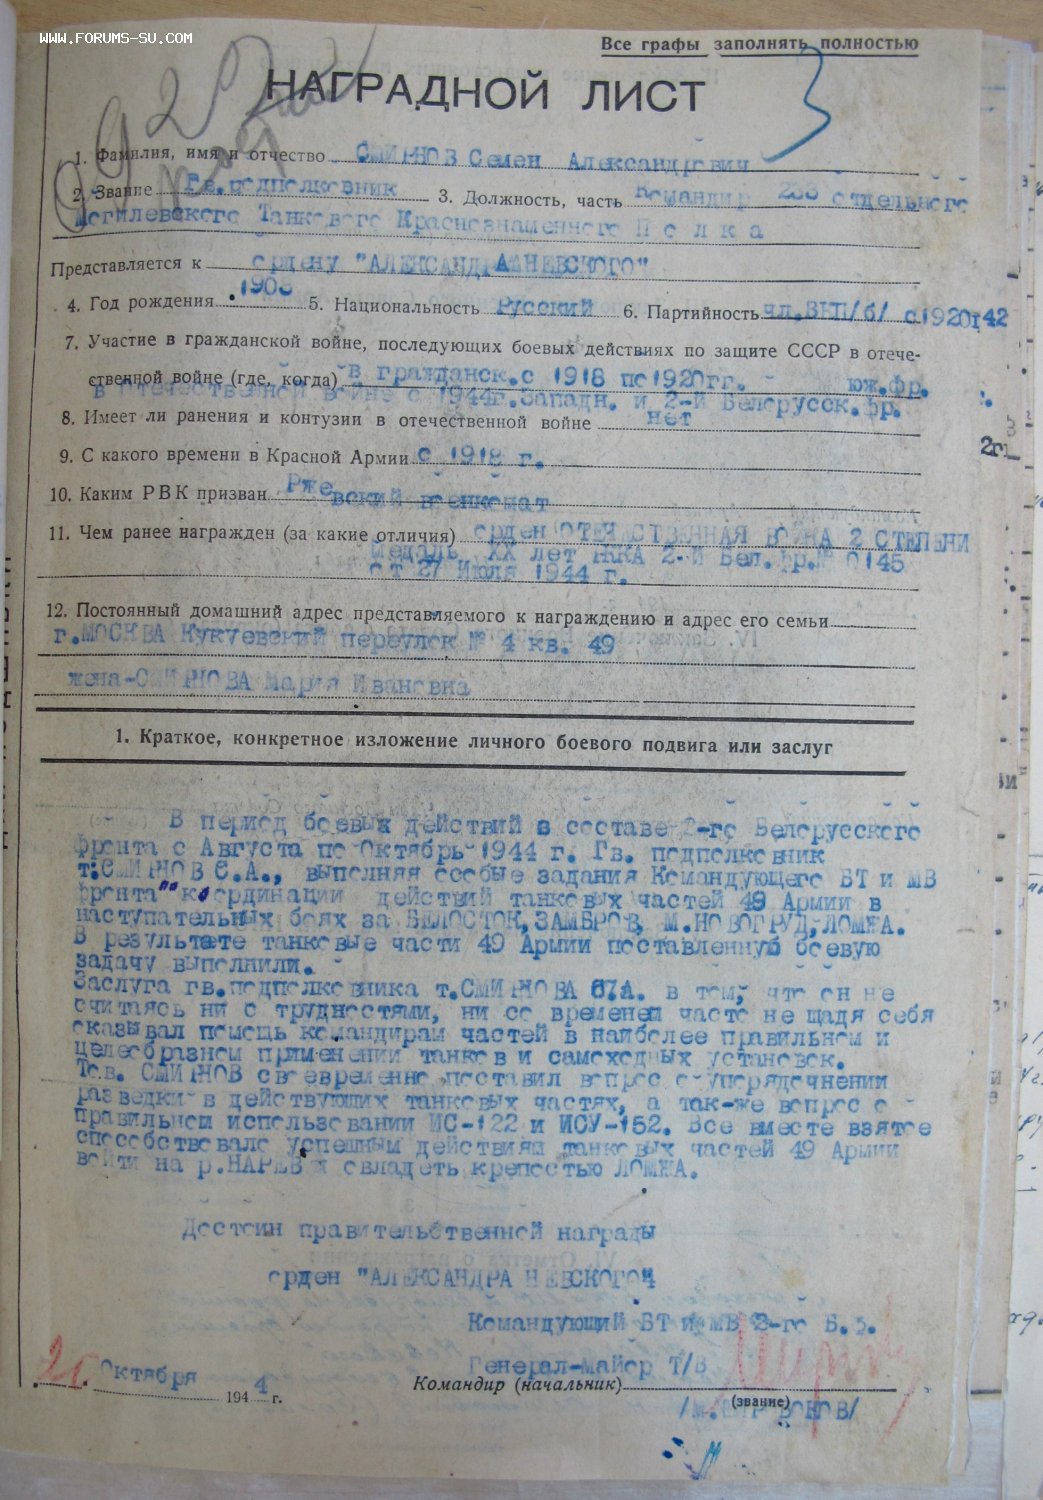 WWW.FORUMS-SU.COM
Все графы заполнять полностью
НАГРАДНОЙ ЛИСТ
3
1. Фамилия, имя и отчество СМИРНОВ Семен Александрович
2. Звание Гв.подполковник 3. Должность, часть Командир 233 отдельного
Могилевского Танкового Краснознаменного Полка
Представляется к ордену "АЛЕКСАНДРА НЕВСКОГО"
4. Год рождения 1903 5. Национальность Русский 6. Партийность чл.ВКП/б/ с 1920г
7. Участие в гражданской войне, последующих боевых действиях по защите СССР в отече-
ственной войне (где, когда) в гражданск.с 1918 по 1920гг. - юж.фр.
в Отечественной войне с 1944г.Западн. и 2-й Белорусск.фр.
8. Имеет ли ранения и контузии в отечественной войне нет
9. С какого времени в Красной Армии с 1918 г.
10. Каким РВК призван Ржевский военкомат
11. Чем ранее награжден (за какие отличия) орден ОТЕЧЕСТВЕННАЯ ВОЙНА 2 СТЕПЕНИ
медаль XX лет РККА 2-й Бел.фр.№ 0145
от 27 Июля 1944 г.
12. Постоянный домашний адрес представляемого к награждению и адрес его семьи
г.МОСКВА Кукуевский переулок № 4 кв. 49
жена-СМИРНОВА Мария Ивановна
1. Краткое, конкретное изложение личного боевого подвига или заслуг
В период боевых действий в составе 2-го Белорусского
фронта с Августа по Октябрь 1944 г. Гв. подполковник
т.СМИРНОВ С.А., выполняя особые задания Командующего БТ и МВ
фронта координации действий танковых частей 49 Армии в
наступательных боях за БЕЛОСТОК,ЗАМБРОВ, М.НОВОГРУД,ЛОМЖА.
В результате танковые части 49 Армии поставленную боевую
задачу выполнили.
Заслуга гв.подполковника т.СМИРНОВА С.А. в том, что он не
считаясь ни с трудностями, ни со временем часто не щадя себя
оказывал помощь командирам частей в наиболее правильном и
целеобразном применении танков и самоходных установок.
Тов. СМИРНОВ своевременно поставил вопрос о упорядочнении
разведки в действующих танковых частях, а так-же вопрос о
правильном использовании ИС-122 и ИСУ-152. Все вместе взятое
способствовало успешным действиям танковых частей 49 Армии
войти на р.НАРЕВ и овладеть крепостью ЛОМЖА.
Достоин правительственной награды
орден "АЛЕКСАНДРА НЕВСКОГО"
Командующий БТ и МВ 2-го Б.Ф.
Генерал-майор Т/В
Октября 1944 г. Командир (начальник)
(звание)